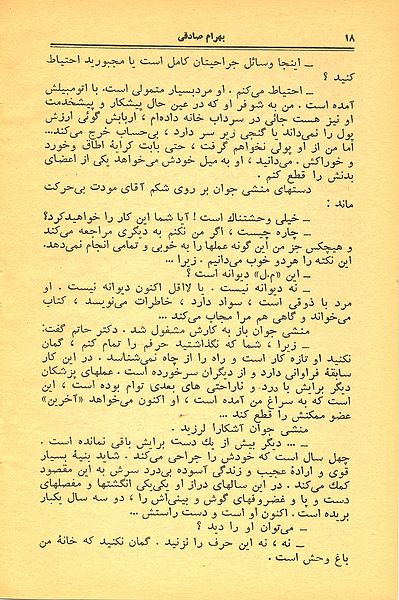 ۱۸ بهرام صادقی
ــ اینجا وسائل جراحیتان کامل است یا مجبورید احتیاط
کنید ؟
ــ احتیاط می‌کنم . او مردبسیار متمولی است. با اتومبیلش
آمده است . من به شوفر او که در عین حال پیشکار و پیشخدمت
او نیز هست جائی در سرداب خانه داده‌ام ، اربابش گوئی ارزش
پول را نمی‌داند یا گنجی زیر سر دارد ، بی‌حساب خرج می‌کند...
اما من از او پولی نخواهم گرفت ، حتی بابت کرایهٔ اطاقی وخورد
و خوراکش . می‌دانید ، او به میل خودش می‌خواهد یکی از اعضای
بدنش را قطع کنم .
دستهای منشی جوان بر روی شکم آقای مودت بی‌حرکت
ماند :
ــ خیلی وحشتناك است ! آیا شما این کار را خواهیدکرد؟
ــ چاره چیست ، اگر من نکنم به دیگری مراجعه می‌کند
و هیچکس جز من این گونه عملها را به خوبی و تمامی انجام نمی‌دهد.
این نکته را هردو خوب می‌دانیم . زیرا ...
ــ این «م.ل» دیوانه است ؟
ــ نه دیوانه نیست . یا لااقل اکنون دیوانه نیست . او
مرد با ذوقی است ، سواد دارد ، خاطرات می‌نویسد ، کتاب
می‌خواند و گاهی هم مرا مجاب می‌کند ...
منشی جوان باز به کارش مشغول شد . دکتر حاتم گفت:
ــ زیرا ، شما که نگذاشتید حرفم را تمام کنم ، گمان
نکنید او تازه کار است و راه را از چاه نمی‌شناسد . در این کار
سابقهٔ فراوانی دارد و از دیگران سرخورده است . عملهای پزشکان
دیگر برایش با درد و ناراحتی های بعدی توام بوده است ، این
است که به سراغ من آمده است ، او اکنون می‌خواهد «آخرین»
عضو ممکنش را قطع کند ...
منشی جوان آشکارا لرزید .
ــ ... دیگر بیش از یك دست برایش باقی نمانده است .
چهل سال است که خودش را جراحی می‌کند . شاید بنیهٔ بسیار
قوی و ارادهٔ عجیب و زندگی آسوده بی‌درد سرش به این مقصود
کمك می‌کند . در این سالهای دراز او یکی‌یکی انگشتها و مفصلهای
دست و پا و غضروفهای گوش و بینی‌اش را ، دو سه سال یکبار
بریده است . اکنون او است و دست راستش ...
ــ می‌توان او را دید ؟
ــ نه ، نه این حرف را نزنید . گمان نکنید که خانهٔ من
باغ وحش است .